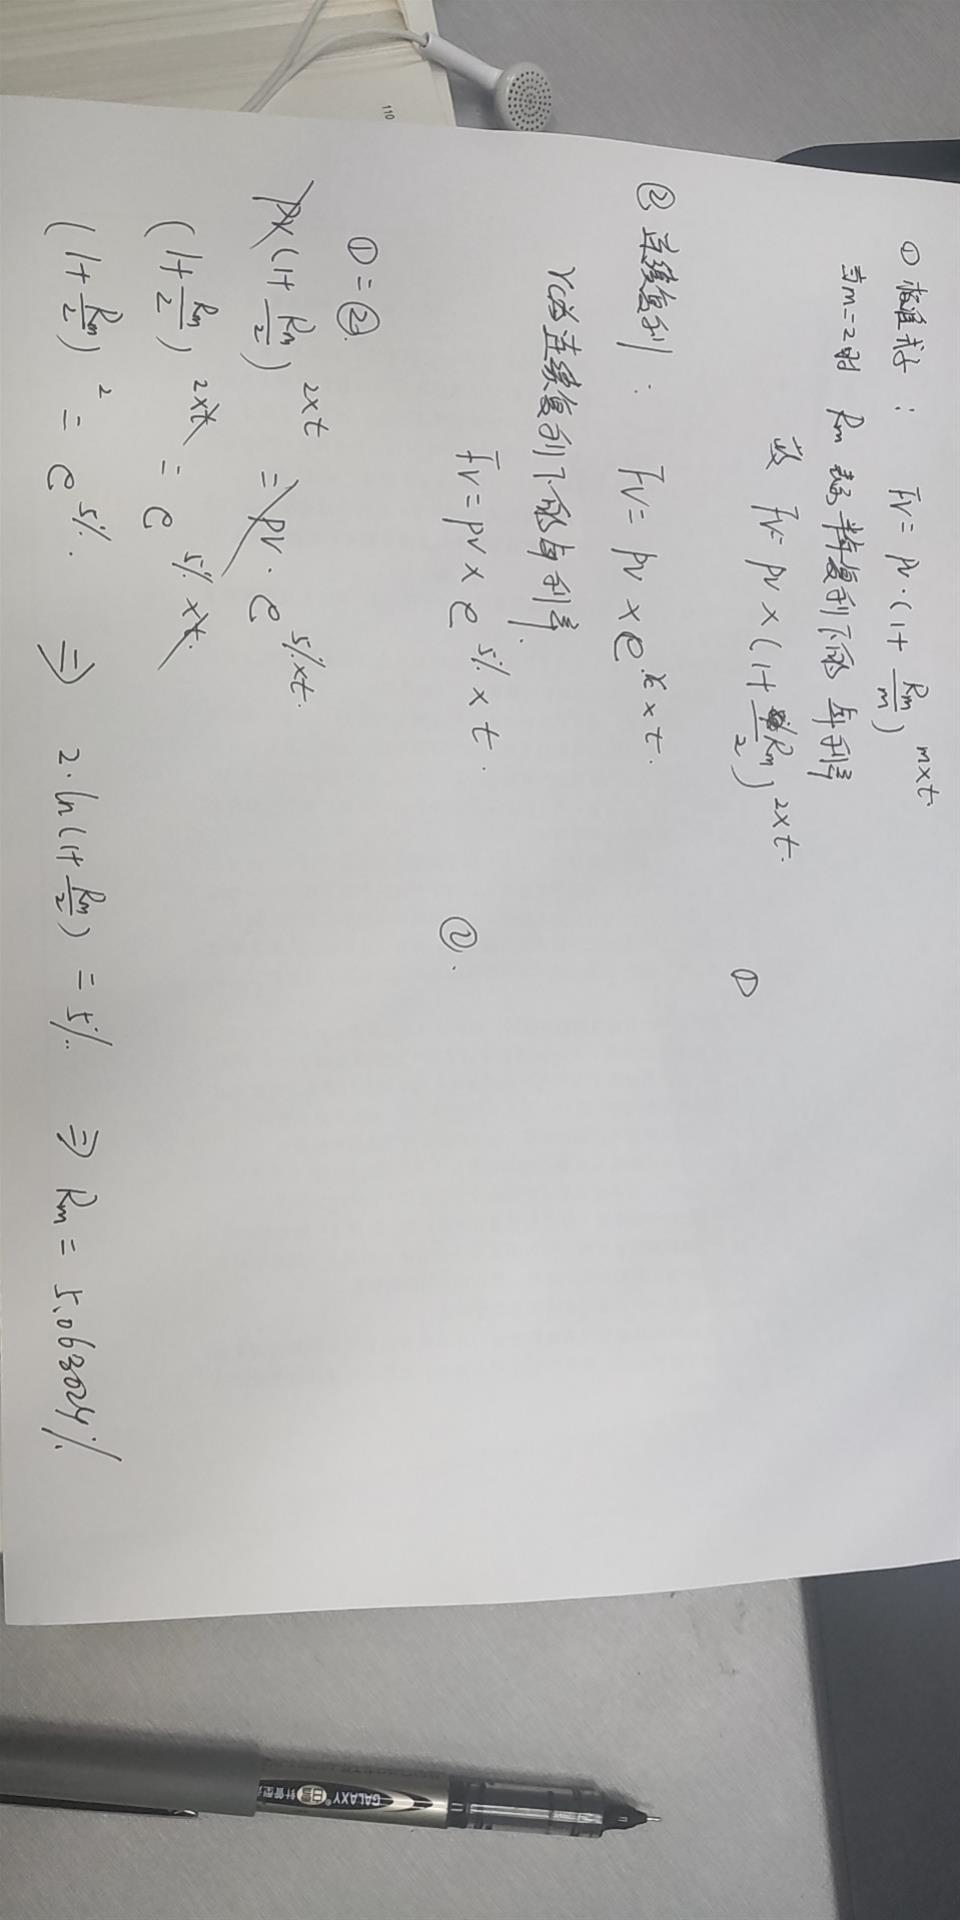 ① 标准式子： FV = PV·(1+ Rm/m)^(m×t)
当m=2时 Rm 表示半年复利下的年利率
故 FV = PV × (1+ Rm/2)^(2×t). ①
② 连续复利： FV = PV × e^(rc×t).
rc为连续复利下的年利率.
FV = PV × e^(5%×t). ②.
① = ②.
PV(1+ Rm/2)^(2×t) = PV·e^(5%×t).
(1+ Rm/2)^(2×t) = e^(5%×t).
(1+ Rm/2)^2 = e^(5%). ⇒ 2·ln(1+ Rm/2) = 5% ⇒ Rm = 5.063024%
110
GALAXY®